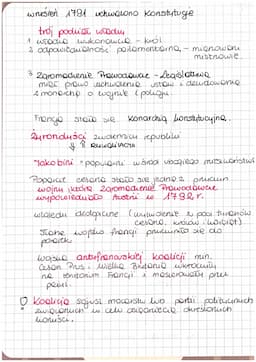 wrzesień 1791 uchwalono Konstytucję
trój podział władzy
1. władza wykonawcza - król
2. odpowiedzialność parlamentarna - mianowani
ministrowie
3. Zgromadzenie Prawodawcze - Legislatywa
miał prawo uchwalania ustaw i decydowania
z monarchą o wojnie i pokoju.
Francja stała się monarchią konstytucyjną.
Żyrondyści zwolennicy republiki
"Jakobini" - popularni wśród ubogiego mieszczaństwa
Poparcie cesarza stało się jedną z przyczyn
wojny, którą Zgromadzenie Prawodawcze
wypowiedziało Austrii w 1792 r.
władcy
cesarza, królów i książąt)
Słabe wojsko Francji przyczyniło się do
porażki
wojska antyfrancuskiej koalicji min.
Cesarz, Prus, Wielka Brytania wkroczyły
na terytorium Francji i maszerowały przez
Koalicja sojusz mocarstw lub partii politycznych
związanych w celu osiągnięcia określonych
korzyści.